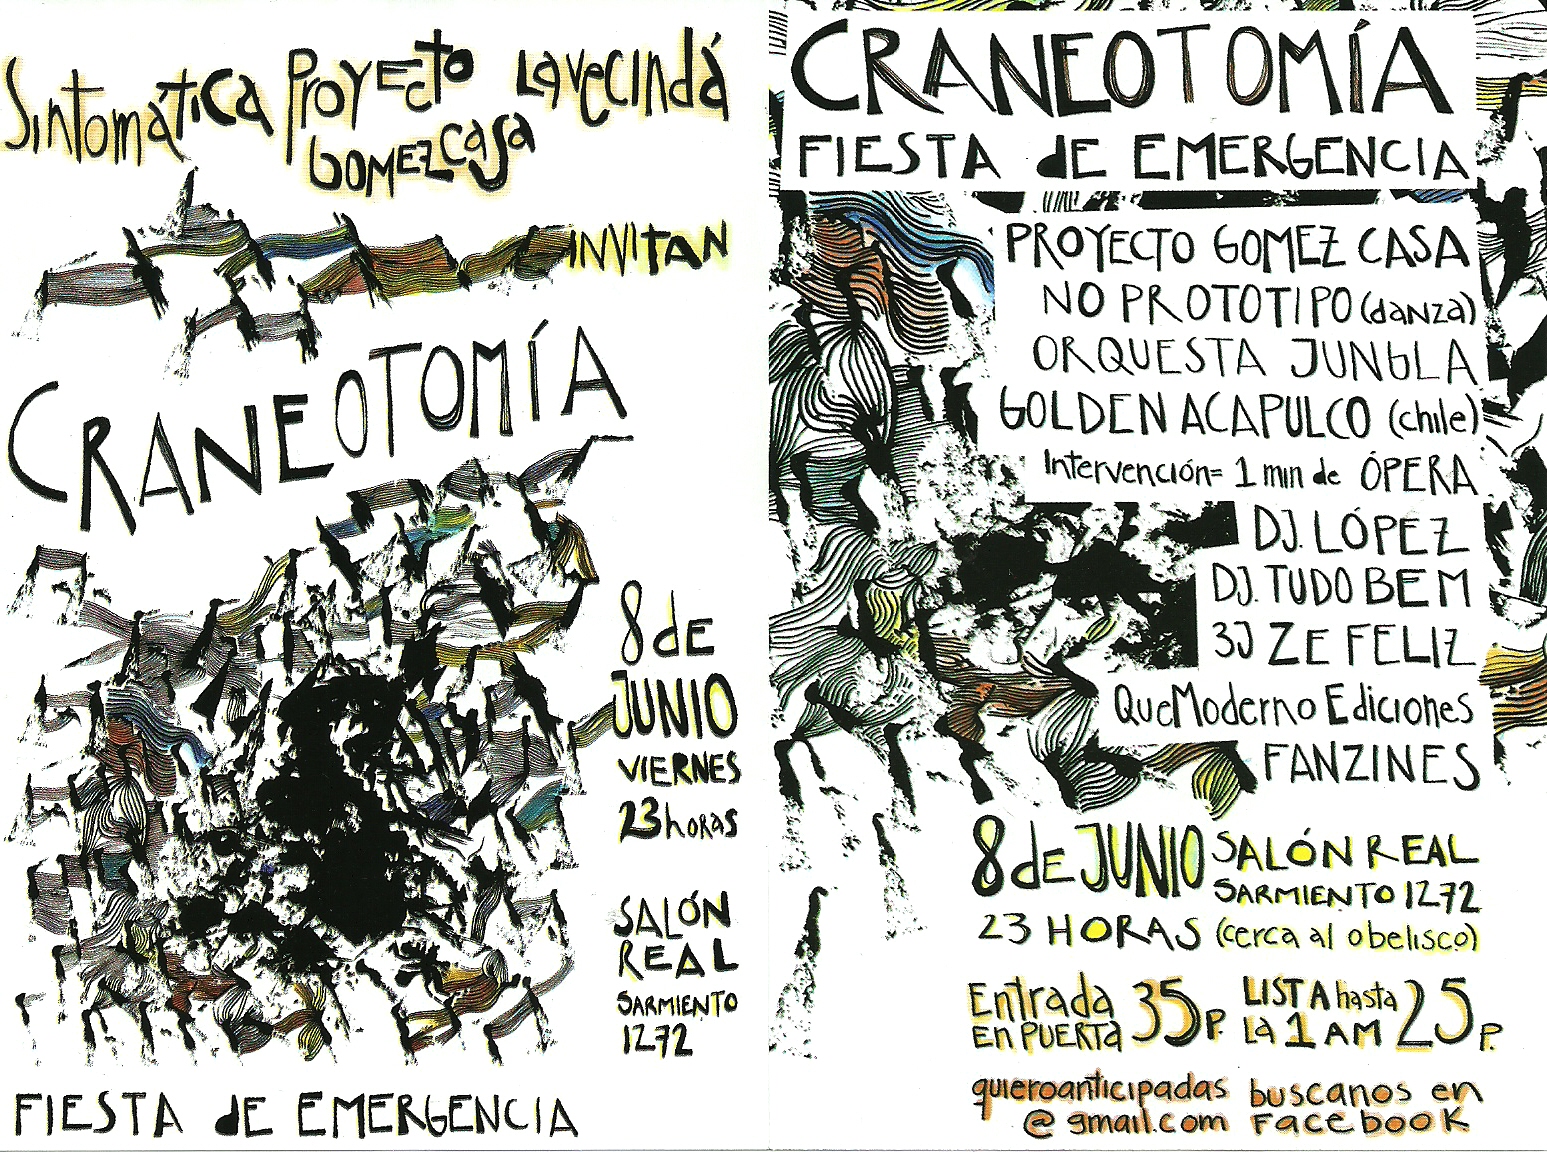 Sintomática Proyecto Lavecindá
GOMEZ CASA
INVITAN
CRANEOTOMÍA
8 de
JUNIO
VIERNES
23 horas
SALÓN
REAL
SARMIENTO
1272
FIESTA de EMERGENCIA
CRANEOTOMÍA
FIESTA de EMERGENCIA
PROYECTO GOMEZ CASA
NO PROTOTIPO (danza)
ORQUESTA JUNGLA
GOLDEN ACAPULCO (chile)
Intervención= 1 min de ÓPERA
DJ. LÓPEZ
DJ. TUDO BEM
3J ZE FELIZ
QueModerno Ediciones
FANZINES
8 de JUNIO SALÓN REAL
SARMIENTO 1272
23 HORAS (cerca al obelisco)
Entrada 35 P. LISTA hasta 25 P.
EN PUERTA LA 1 AM
quieroanticipadas buscanos en
@gmail.com Facebook